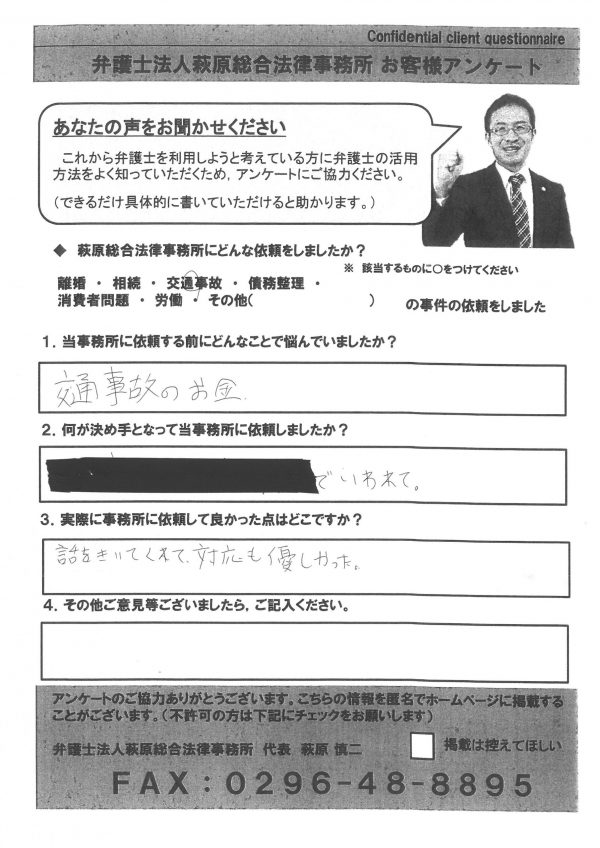 Confidential client questionnaire
弁護士法人萩原総合法律事務所 お客様アンケート
あなたの声をお聞かせください
これから弁護士を利用しようと考えている方に弁護士の活用
方法をよく知っていただくため，アンケートにご協力ください。
（できるだけ具体的に書いていただけると助かります。）
◆ 萩原総合法律事務所にどんな依頼をしましたか？
※ 該当するものに○をつけてください
離婚 ・ 相続 ・ 交通事故 ・ 債務整理 ・
消費者問題 ・ 労働 ・ その他(　　　　　　　　) の事件の依頼をしました
１．当事務所に依頼する前にどんなことで悩んでいましたか？
交通事故のお金.
２．何が決め手となって当事務所に依頼しましたか？
でいわれて。
３．実際に事務所に依頼して良かった点はどこですか？
話をきいてくれて、対応も優しかった。
４．その他ご意見等ございましたら，ご記入ください。
アンケートのご協力ありがとうございます。こちらの情報を匿名でホームページに掲載する
ことがございます。（不許可の方は下記にチェックをお願いします）
弁護士法人萩原総合法律事務所 代表 萩原 慎二 掲載は控えてほしい
FAX：0296-48-8895